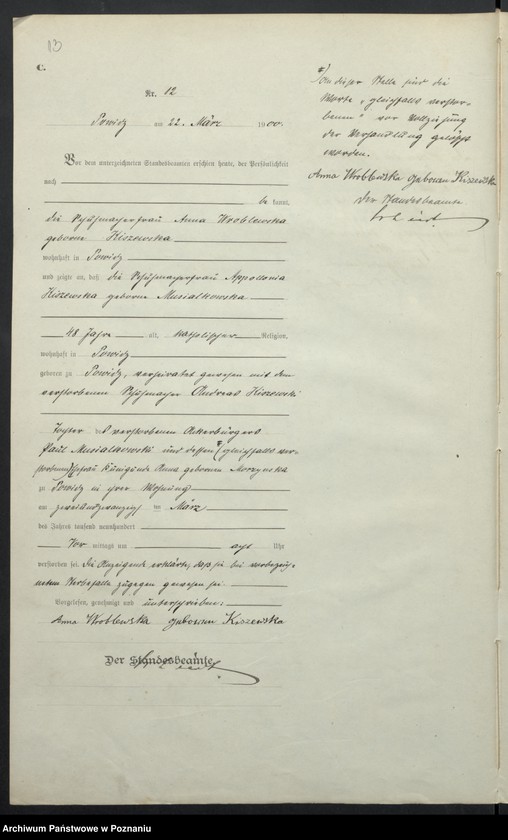 13
C.
Nr. 12
Powidz am 22. März 1900.
Vor dem unterzeichneten Standesbeamten erschien heute, der Persönlichkeit
nach
be kannt,
die Schuhmacherfrau Anna Wroblewska
geborene Kiszewska
wohnhaft in Powidz
und zeigte an, daß die Schuhmacherfrau Appolonia
Kiszewska geborene Musialkowska
48 Jahre alt, katholischer Religion,
wohnhaft in Powidz
geboren zu Powidz, verheiratet gewesen mit dem
verstorbenen Schuhmacher Andreas Kiszewski
Tochter des verstorbenen Ackerbürgers
Paul Musialkowski und dessen (gleichfalls ver-
storbenen) Ehefrau Kunigunde Anna geborenen
zu Powidz in ihrer Wohnung
am zweiundzwanzigsten März
des Jahres tausend neunhundert
Vor mittags um acht Uhr
verstorben sei. Die Anzeigende erklärte, daß sie bei vorbezeich-
netem Sterbefalle zugegen gewesen sei.
Vorgelesen, genehmigt und unterschrieben:
Anna Wroblewska geborene Kiszewska
Der Standesbeamte.
An dieser Stelle sind die
Worte "gleichfalls verstor-
benen" vor Vollziehung
der Verhandlung gelöscht
worden.
Anna Wroblewska geborene Kiszewska
Der Standesbeamte.
Archiwum Państwowe w Poznaniu